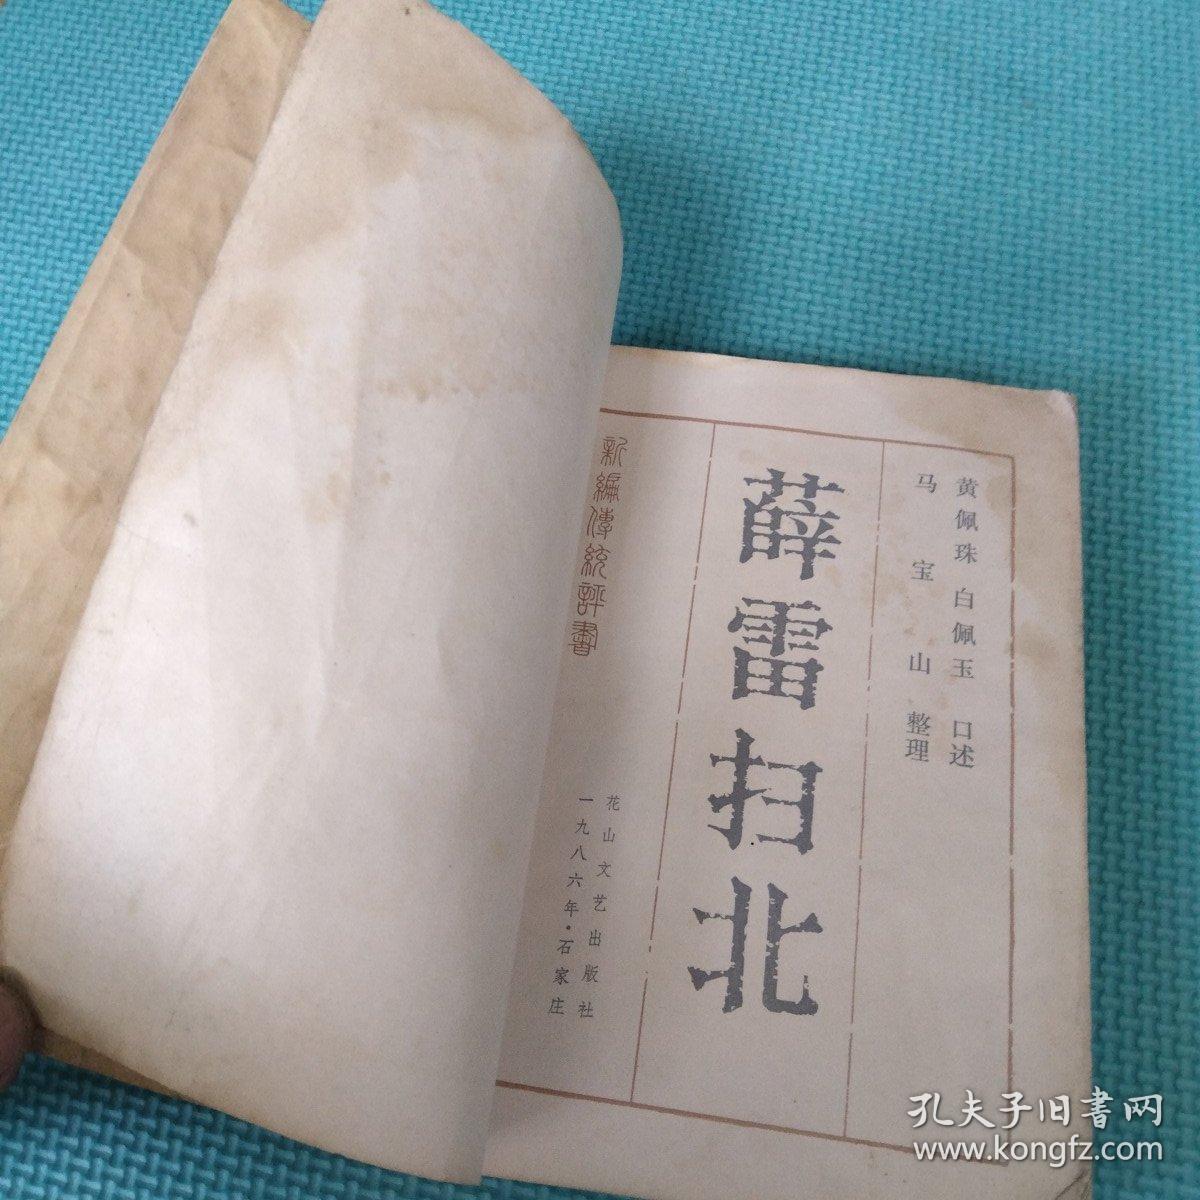 黄佩珠 白佩玉 口述
马宝山 整理
薛雷扫北
新編傳統評書
花山文艺出版社
一九八六年·石家庄
孔夫子旧書网
www.kongfz.com